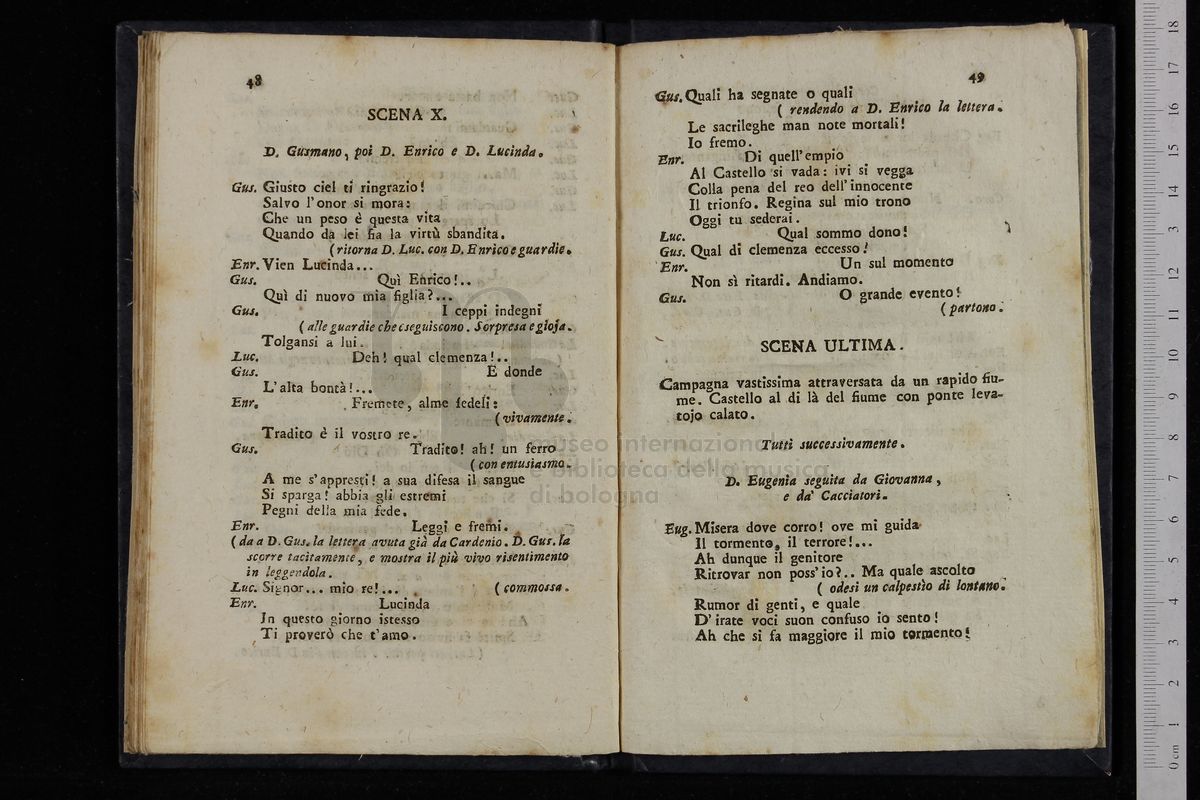 48
SCENA X.
D. Gusmano, poi D. Enrico e D. Lucinda.
Gus. Giusto ciel ti ringrazio!
Salvo l'onor si mora:
Che un peso è questa vita
Quando da lei fia la virtù sbandita.
(ritorna D. Luc. con D. Enrico e guardie.
Enr. Vien Lucinda...
Gus. Quì Enrico!..
Quì di nuovo mia figlia?...
Gus. I ceppi indegni
(alle guardie che eseguiscono. Sorpresa e gioja.
Tolgansi a lui.
Luc. Deh! qual clemenza!..
Gus. E donde
L'alta bontà!...
Enr. Fremete, alme fedeli:
(vivamente.
Tradito è il vostro re.
Gus. Tradito! ah! un ferro
(con entusiasmo.
A me s'appresti! a sua difesa il sangue
Si sparga! abbia gli estremi
Pegni della mia fede.
Enr. Leggi e fremi.
(da a D. Gus. la lettera avuta già da Cardenio. D. Gus. la
scorre tacitamente, e mostra il più vivo risentimento
in leggendola.
Luc. Signor... mio re!... (commossa.
Enr. Lucinda
In questo giorno istesso
Ti proverò che t'amo.
49
Gus. Quali ha segnate o quali
(rendendo a D. Enrico la lettera.
Le sacrileghe man note mortali!
Io fremo.
Enr. Di quell'empio
Al Castello si vada: ivi si vegga
Colla pena del reo dell'innocente
Il trionfo. Regina sul mio trono
Oggi tu sederai.
Luc. Qual sommo dono!
Gus. Qual di clemenza eccesso!
Enr. Un sul momento
Non sì ritardi. Andiamo.
Gus. O grande evento!
(partono.
SCENA ULTIMA.
Campagna vastissima attraversata da un rapido fiu-
me. Castello al di là del fiume con ponte leva-
tojo calato.
Tutti successivamente.
D. Eugenia seguita da Giovanna,
e da' Cacciatori.
Eug. Misera dove corro! ove mi guida
Il tormento, il terrore!...
Ah dunque il genitore
Ritrovar non poss'io?.. Ma quale ascolto
(odesi un calpestìo di lontano.
Rumor di genti, e quale
D'irate voci suon confuso io sento!
Ah che si fa maggiore il mio tormento!
museo internazionale
e biblioteca della musica
di bologna
0 cm 1 2 3 4 5 6 7 8 9 10 11 12 13 14 15 16 17 18